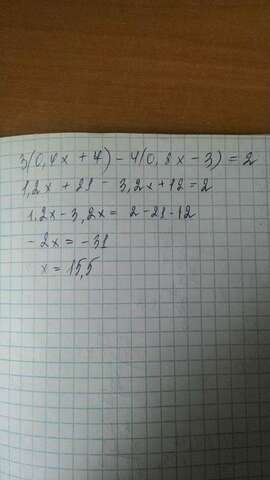 3(0,4x + 7) - 4(0,8x - 3) = 2
1,2x + 21 - 3,2x + 12 = 2
1.2x - 3,2x = 2 - 21 - 12
- 2x = - 31
x = 15,5